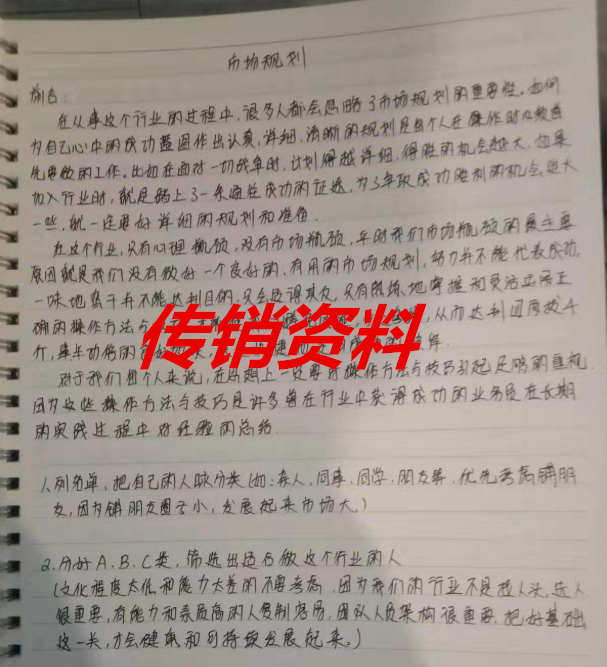 市场规划
前言:
在从事这个行业的过程中,很多人都会忽略了市场规划的重要性。如何
为自己心中的成功蓝图作出认真,详细,清晰的规划是每个人在操作时必须首
先要做的工作。比如在面对一切战争时,计划得越详细,得胜的机会越大,如果
加入行业时,就是踏上了一条通往成功的征途,为了争取成功胜利的机会更大
一些,就一定要好详细的规划和准备.
在这个行业,只有心理瓶颈,没有市场瓶颈,平时我们市场瓶颈的最主要
原因就是我们没有做好一个良好的,有用的市场规划,努力并不能代表成功,
一味地蛮干并不能达到目的,只会适得其反,只有熟练地掌握和灵活运用正
确的操作方法与
传销资料
,从而达到四两拨千
斤,事半功倍的
对于我们每个人来说,在思想上一定要对操作方法与技巧引起足够的重视
因为这些操作方法与技巧是许多曾在行业中获得成功的业务员在长期
的实践过程中对经验的总结.
1.列名单,把自己的人脉分类(如:亲人,同事,同学,朋友等,优先考虑铺朋
友,因为铺朋友圈子小,发展起来市场大)
2.分好A、B、C类,筛选出适合做这个行业的人
(文化程度太低和能力太差的不要考虑,因为我们的行业不是拉人头,选人
很重要,有能力和素质高的人复制容易,团队人员架构很重要,把好基础
这一关,才会健康和可持续发展起来。)